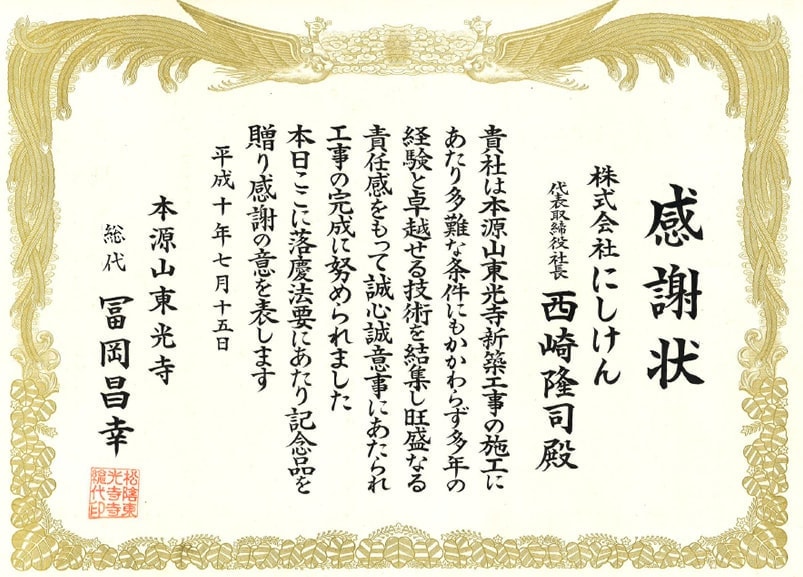 感謝状
株式会社にしけん
代表取締役社長 西崎隆司殿
貴社は本源山東光寺新築工事の施工に
あたり多難な条件にもかかわらず多年の
経験と卓越せる技術を結集し旺盛なる
責任感をもって誠心誠意事にあたられ
工事の完成に努められました
本日ここに落慶法要にあたり記念品を
贈り感謝の意を表します
平成十年七月十五日
本源山東光寺
総代 冨岡昌幸